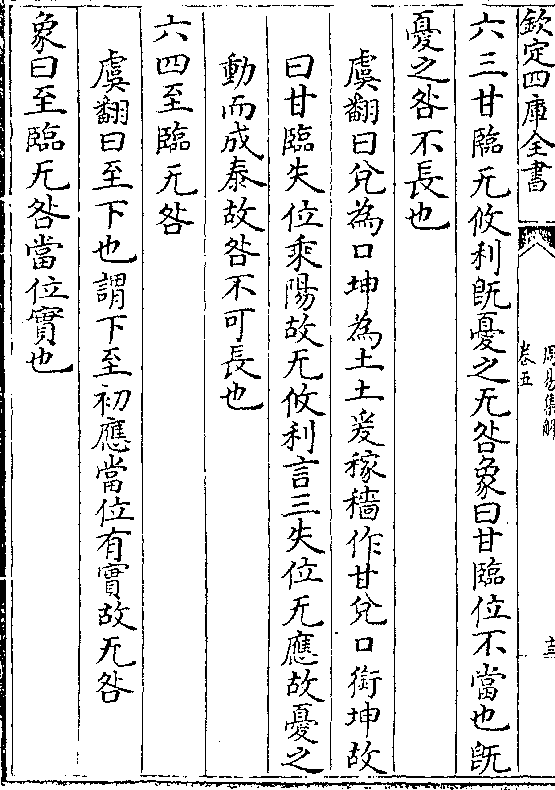 欽定四庫全書
周易集解
卷五
十三
六三甘臨无攸利旣憂之无咎象曰甘臨位不當也旣
憂之咎不長也
虞翻曰兌為口坤為土土爰稼穡作甘兌口銜坤故
曰甘臨失位乘陽故无攸利言三失位无應故憂之
動而成泰故咎不可長也
六四至臨无咎
虞翻曰至下也謂下至初應當位有實故无咎
象曰至臨无咎當位實也